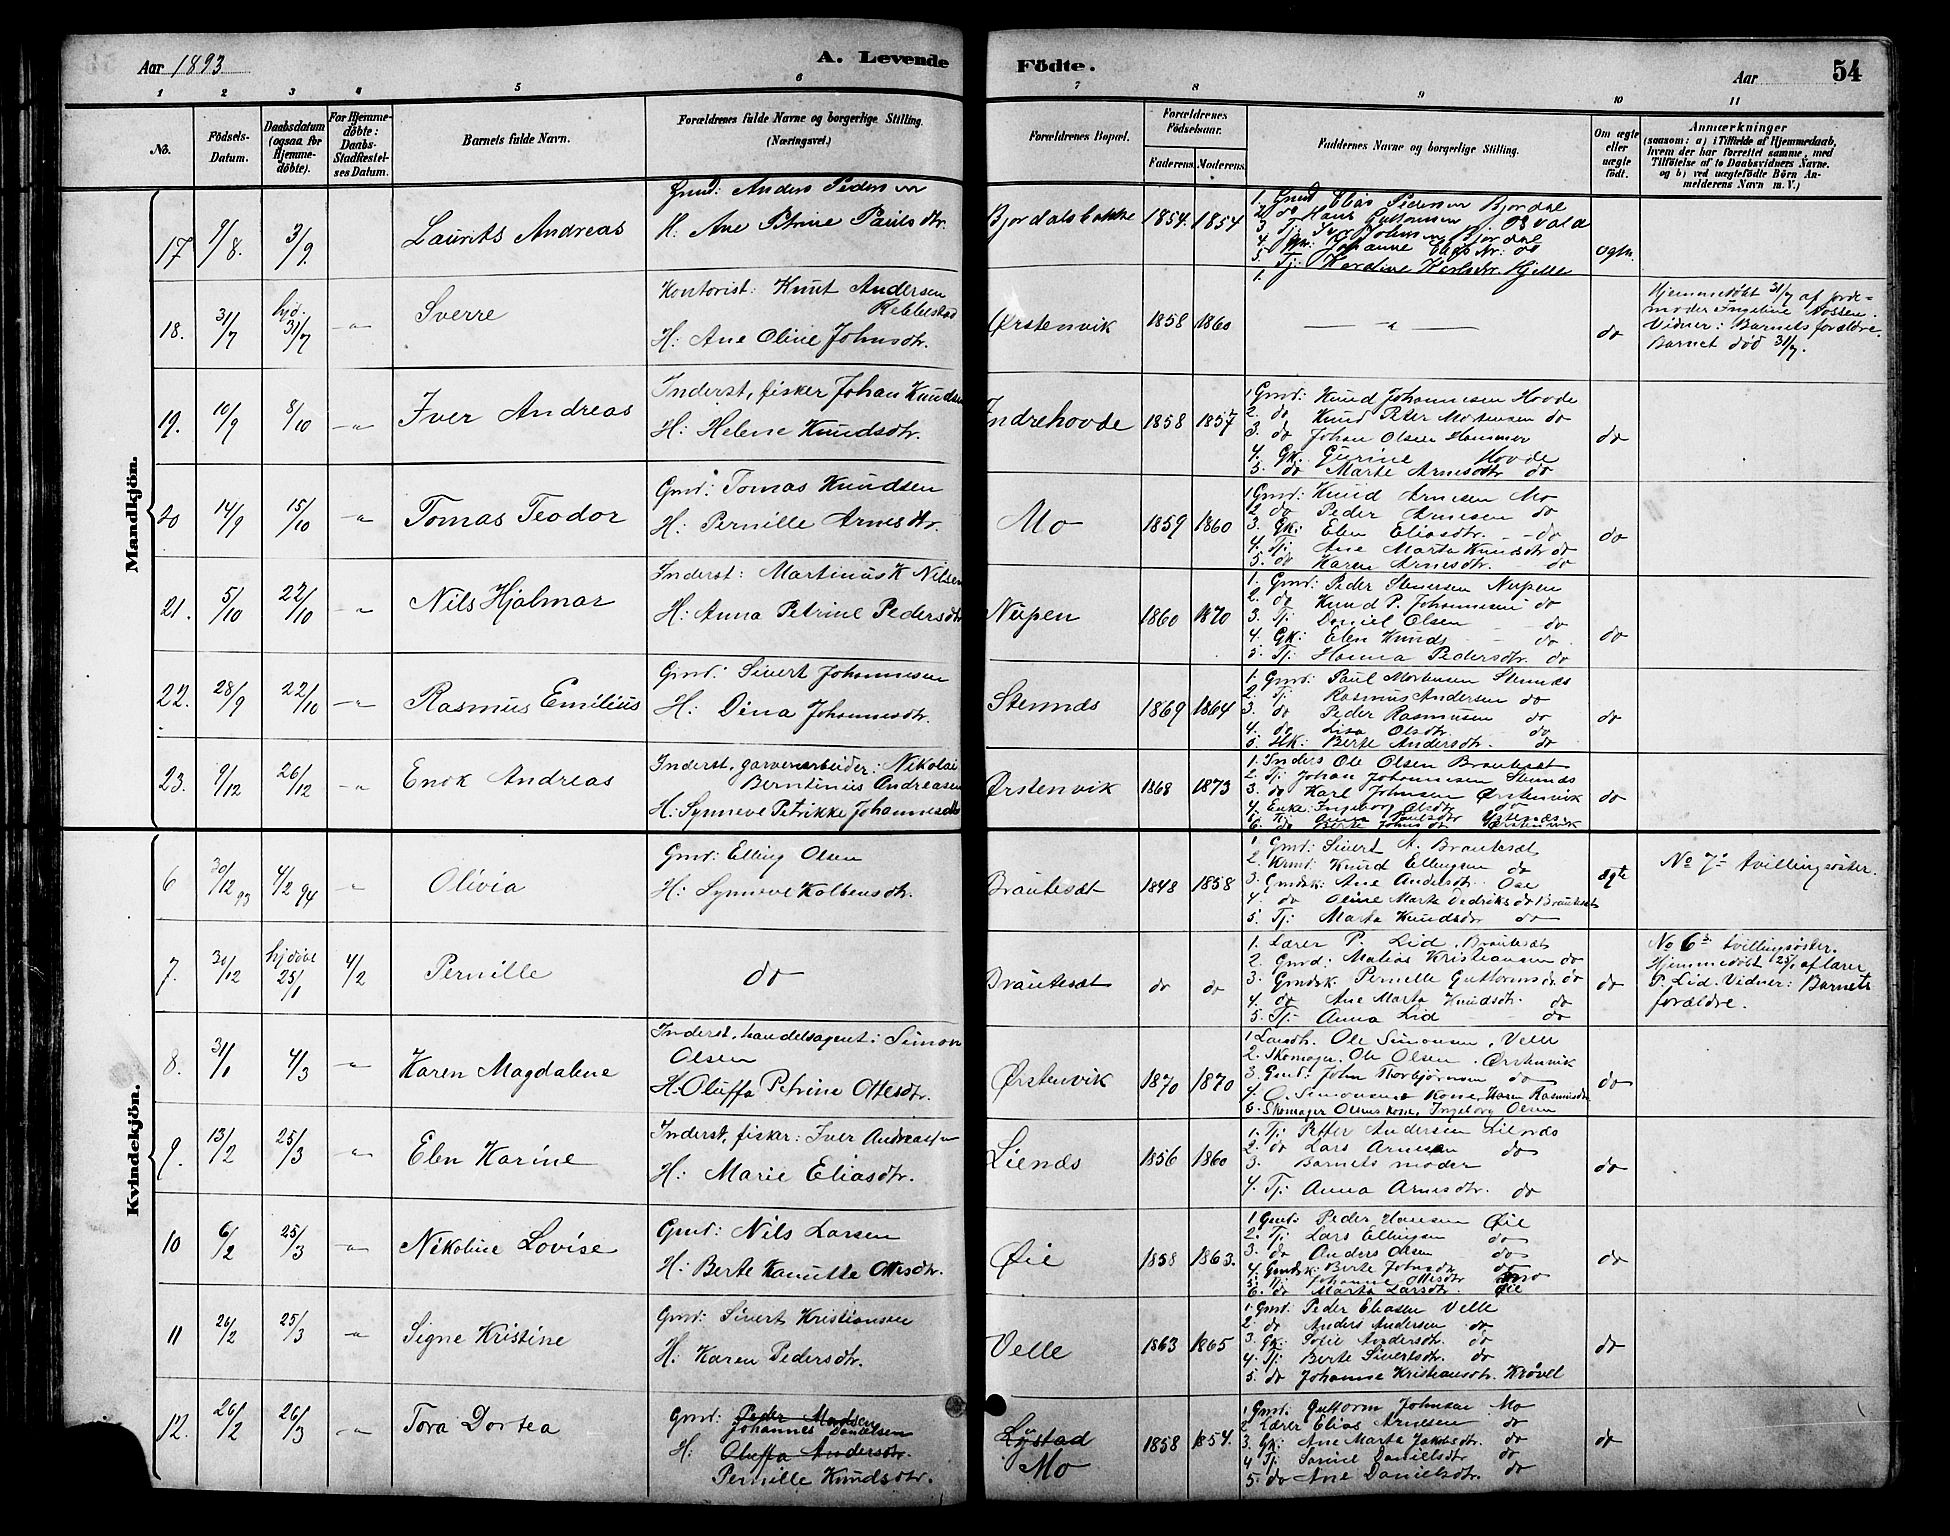 Aar 1893
A. Levende Födte.
Aar
54
1 2 3 4 5 6 7 8 9 10 11
No.
Födsels-Datum.
Daabsdatum (ogsaa for Hjemme-döbte).
For Hjemme-döbte: Daabs-Stadfæstel-ses Datum.
Barnets fulde Navn.
Forældrenes fulde Navne og borgerlige Stilling. (Næringsvei.)
Forældrenes Bopæl.
Forældrenes Födselsaar.
Faderens. Moderens.
Faddernes Navne og borgerlige Stilling.
Om ægte eller uægte födt.
Anmærkninger
(saasom: a) i Tilfælde af Hjemmedaab, hvem der har forrettet samme, med Tilföielse af to Daabsvidners Navne. og b) ved uægtefödte Börn An-melderens Navn m. V.)
Mandkjön.
17 9/8. 3/9. Laurits Andreas
Gmd: Anders Pedersen
H: Ane Petrine Paulsdtr.
Bjordalsbakke 1854. 1854
1. Gmd Elias Pedersen Bjordal
2. do Hans Guttormsen
4. Johanne
5. Tj:
18. 31/7 hjd. 31/7 Sverre
Kontorist: Knut Andersen
Rebbestad
H: Ane Oline Johnsdtr.
Ørstenvik 1858 1860 do
Hjemmedøbt 31/7 af jorde=
moder Ingeline Nossen.
Vidner: Barnets forældre.
Barnet død 31/7.
19. 10/9 8/10 Iver Andreas
Inderst, fisker Johan Knudsen
H: Helene Knudsdtr.
Indrehovde 1858 1857
1. Gmd: Knud Johannesen Hovde
2. do Knud Peter Mortensen do
3. do Johan Olsen Hammer
4. Gk: Gurine Hovde
5. do Marte Arnesdtr do
do
20 14/9 15/10 Tomas Teodor
Gmd: Tomas Knudsen
H: Pernille Arnesdtr.
Mo 1859 1860
1 Gmd: Knud Arnesen Mo
2 do Peder Arnesen do
3. Gk: Elen Eliasdtr. do
4. Tj: Ane Marta Knudsdtr do
5. do Karen Arnesdtr. do
do
21. 5/10 22/10 Nils Hjalmar
Inderst: Martinus K Nilsen
H: Anna Petrine Pedersdtr
Nupen 1860 1870
1. Gmd: Peder Stenersen Nupen
2. do Knud P. Johannesen do
3. Tj: Daniel Olsen do
4. Gk: Elen Knuds do
5. Tj: Hanna Pedersdtr. do
do
22. 28/9 22/10 Rasmus Emilius
Gmd: Sivert Johannesen
H: Dina Johannesdtr.
Stennes 1869 1864
1. Gmd: Paul Mortensen Stennæs
2. Tj: Rasmus Andersen do
3. do Peder Rasmusen do
4. do Lisa Olsdtr. do
5. Hk: Berte Andersdtr. do
do
23. 9/12 26/12 Enok Andreas
Inderst, garverarbeider: Nikolai
Berntinus Andreasen
H: Synneve Petrikke Johannesdtr
Ørstenvik 1868 1873
1. Inders Ole Olsen Brautesæt
2. Tj: Johan Johannesen Stennæs
3. do Karl Johnsen Ørstenvik
4. Enke: Ingeborg Olsdtr do
5. Tj: Anna Paulsdtr
6. do Berte Johnsdtr Ørstenvik
do
Kvindekjön.
6 30/12 93 4/2 94 Olivia
Gmd: Elling Olsen
H: Synneve Kolbensdtr.
Brautesæt 1848 1858
1. Gmd: Sivert A. Brautesæt
2. Krmd: Knud Ellingsen do
3. Gmdsk: Ane Andersdtr. Ose
4. do Oline Marte Vedriksdtr Brautesæt
5. Tj: Marta Knudsdtr do
ægte
No 7s tvillingsøster.
7. 30/12 hjdøbt 25/1 4/2 Pernille
do
Brautesæt do do
1. Lærer P. Lid, Brautesæt
2. Gmd: Matias Kristiansen do
3. Gmdsk. Pernille Guttormsdr. do
4. do Ane Marta Knudsdtr. do
5. Tj: Anna Lid do
do
No 6s tvillingsøster.
Hjemmedøbt 25/1 af lærer
P. Lid. Vidner: Barnets
forældre.
8. 31/1 4/3 Karen Magdalene
Inderst, handelsagent: Simon
Olsen
H. Oluffa Petrine Ottesdtr.
Ørstenvik 1870 1870
1 Landh. Ole Simonsen, Velle
2. Skomager. Ole Olsen, Ørstenvik
3. Gmd: John Thorbjørnsen do
4. O. Simonsens kone, Karen Rasmusdtr
5. Skomager Olsens kone, Ingeborg Olsen
do
9. 13/2 25/3 Elen Karine
Inderst, fisker: Iver Andreassen
H: Marie Eliasdtr.
Lienæs 1856 1860
1. Tj: Petter Andersen Lienæs
2. do Lars Arnesen do
3. Barnets moder
4. Tj: Anna Arnesdtr. do
do
10 6/2 25/3 Nikoline Lovise
Gmd: Nils Larsen
H: Berte Kanutte Ottesdtr.
Øie 1858 1863.
1. Gmd: Peder Hansen Øie
2. Tj: Lars Ellingsen do
3. do Anders Olsen do
4. Gmdsk: Berte Johnsdtr do
5. Tj: Johanne Ottesdtr Mo
6. do Marta Larsdtr. Øie
do
11 26/2 25/3 Signe Kristine
Gmd: Sivert Kristiansen
H: Karen Pedersdtr.
Velle 1863 1865
1. Gmd: Peder Eliasen Velle
2. do Anders Andersen do
3. Gk: Sofie Andersdtr. do
4. Tj: Berte Sivertsdtr. do
5. do Johanne Kristiansdtr. Krøvel
do
12. 26/2 26/3 Tora Dortea
Gmd: Peder Madsen
Johannes Danielsen
H: Oluffa Andersdtr.
Pernille Knudsdtr.
Lystad
Mo
1858 1854.
1 Gmd: Guttorm Johnsen Mo
2 Lærer Elias Arnesen do
3. Gk: Ane Marta Jakobsdtr. do
4 Tj: Sarine Danielsdtr do
5. do Ane Danielsdtr. do
do